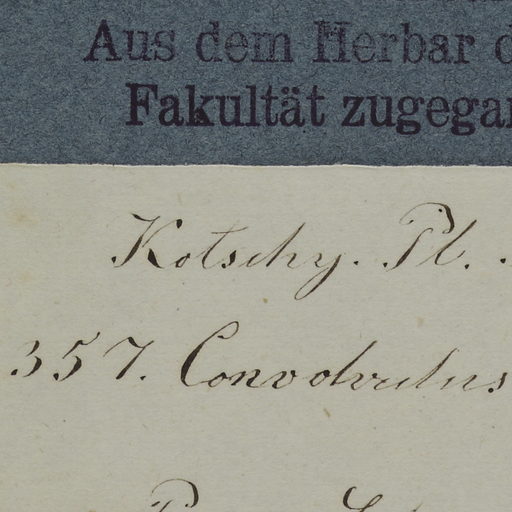 Aus dem Herbar d
Fakultät zugegan
Kotschy. Pl.
357. Convolvulus